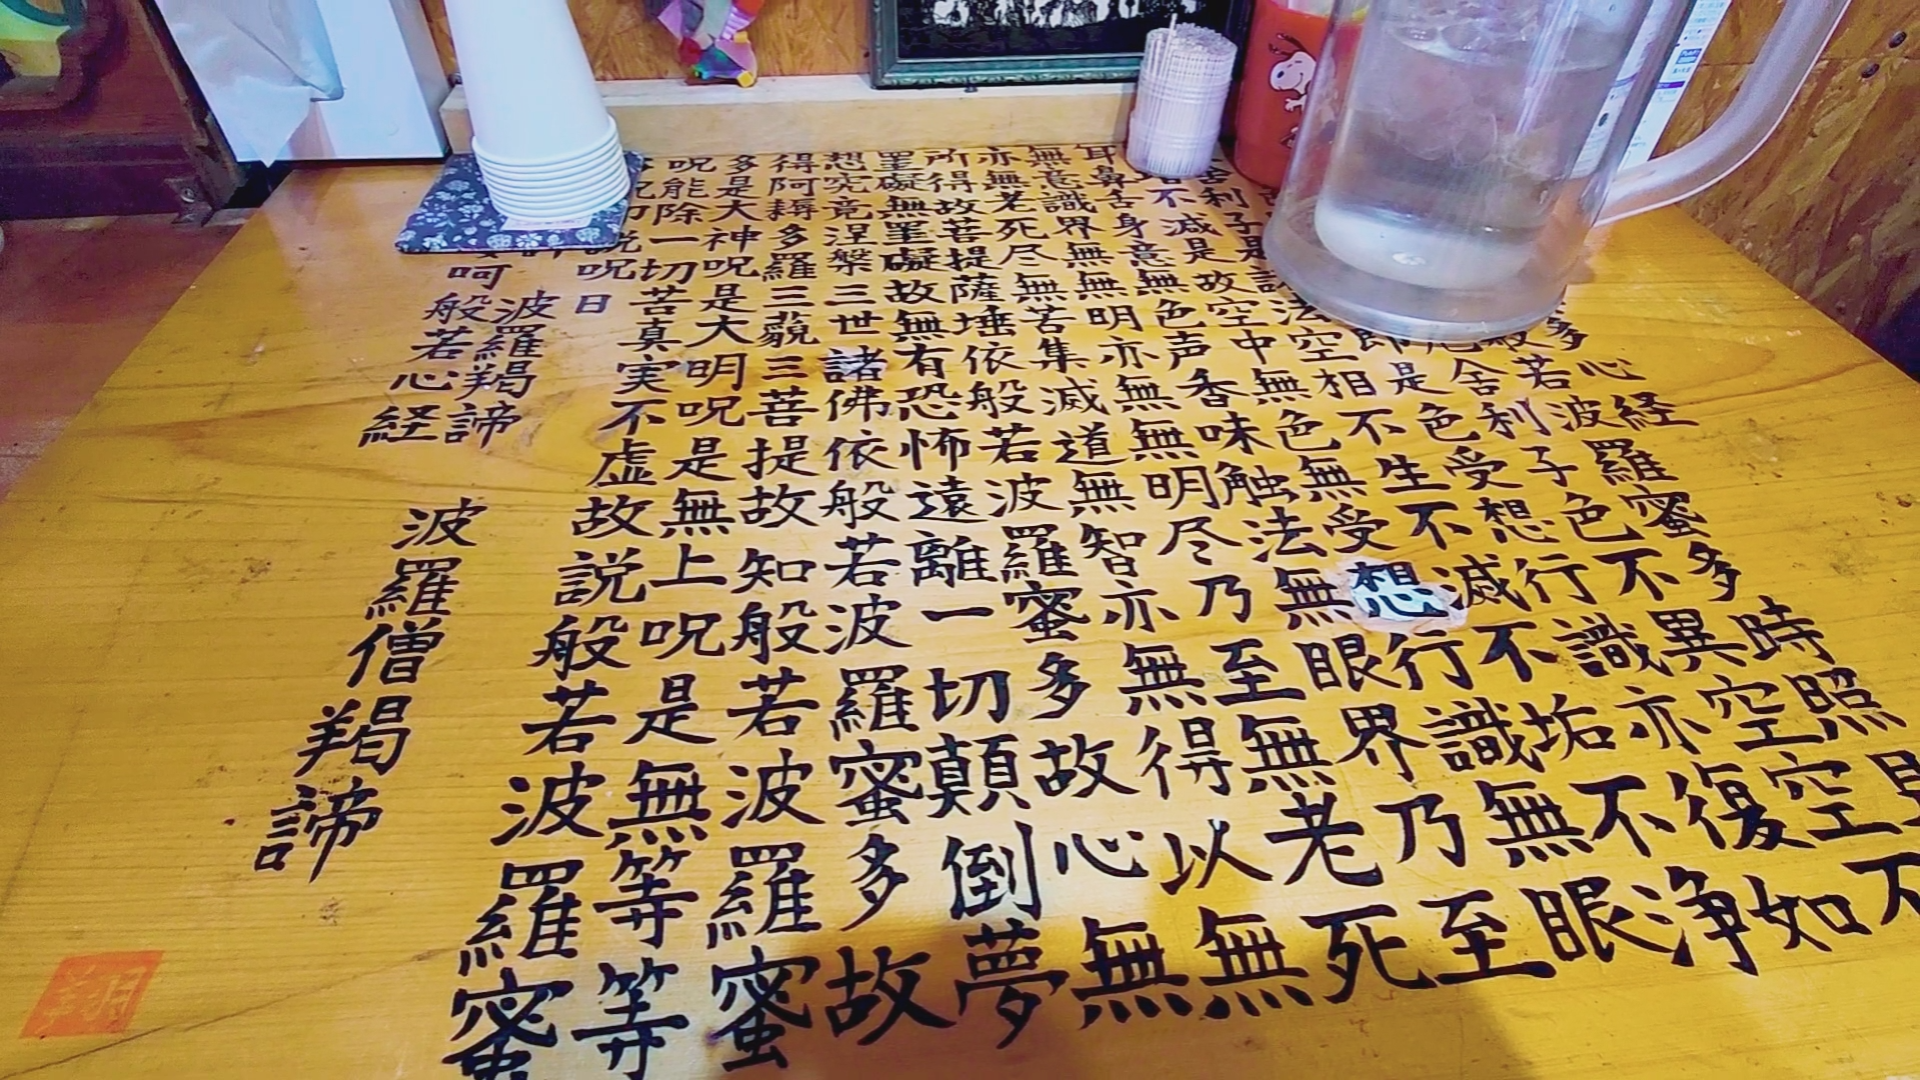 多心経
般若波羅蜜多時照見
厄舎利子色不異空空不
即是色受想行識亦復如
利子是諸法空相不生不滅不垢不浄
不減是故空中無色無受想行識無眼
耳鼻舌身意無色声香味触法無眼界乃至
無意識界無無明亦無無明尽乃至無老死
亦無老死尽無苦集滅道無智亦無得以無
所得故菩提薩埵依般若波羅蜜多故心無
罣礙無罣礙故無有恐怖遠離一切顛倒夢
想究竟涅槃三世諸佛依般若波羅蜜多故
得阿耨多羅三藐三菩提故知般若波羅蜜
多是大神呪是大明呪是無上呪是無等等
呪能除一切苦真実不虚故説般若波羅蜜
説呪日
波羅羯諦 波羅僧羯諦
呵 般若心経